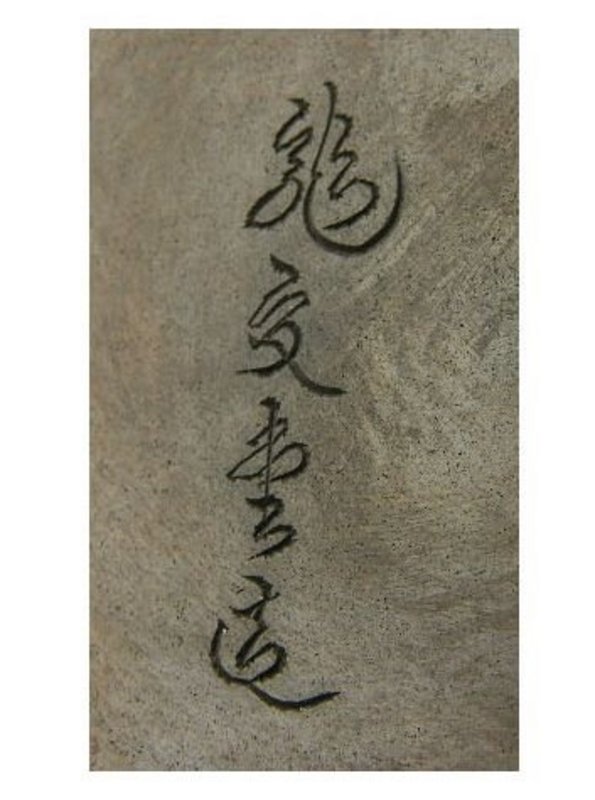 龍文堂造